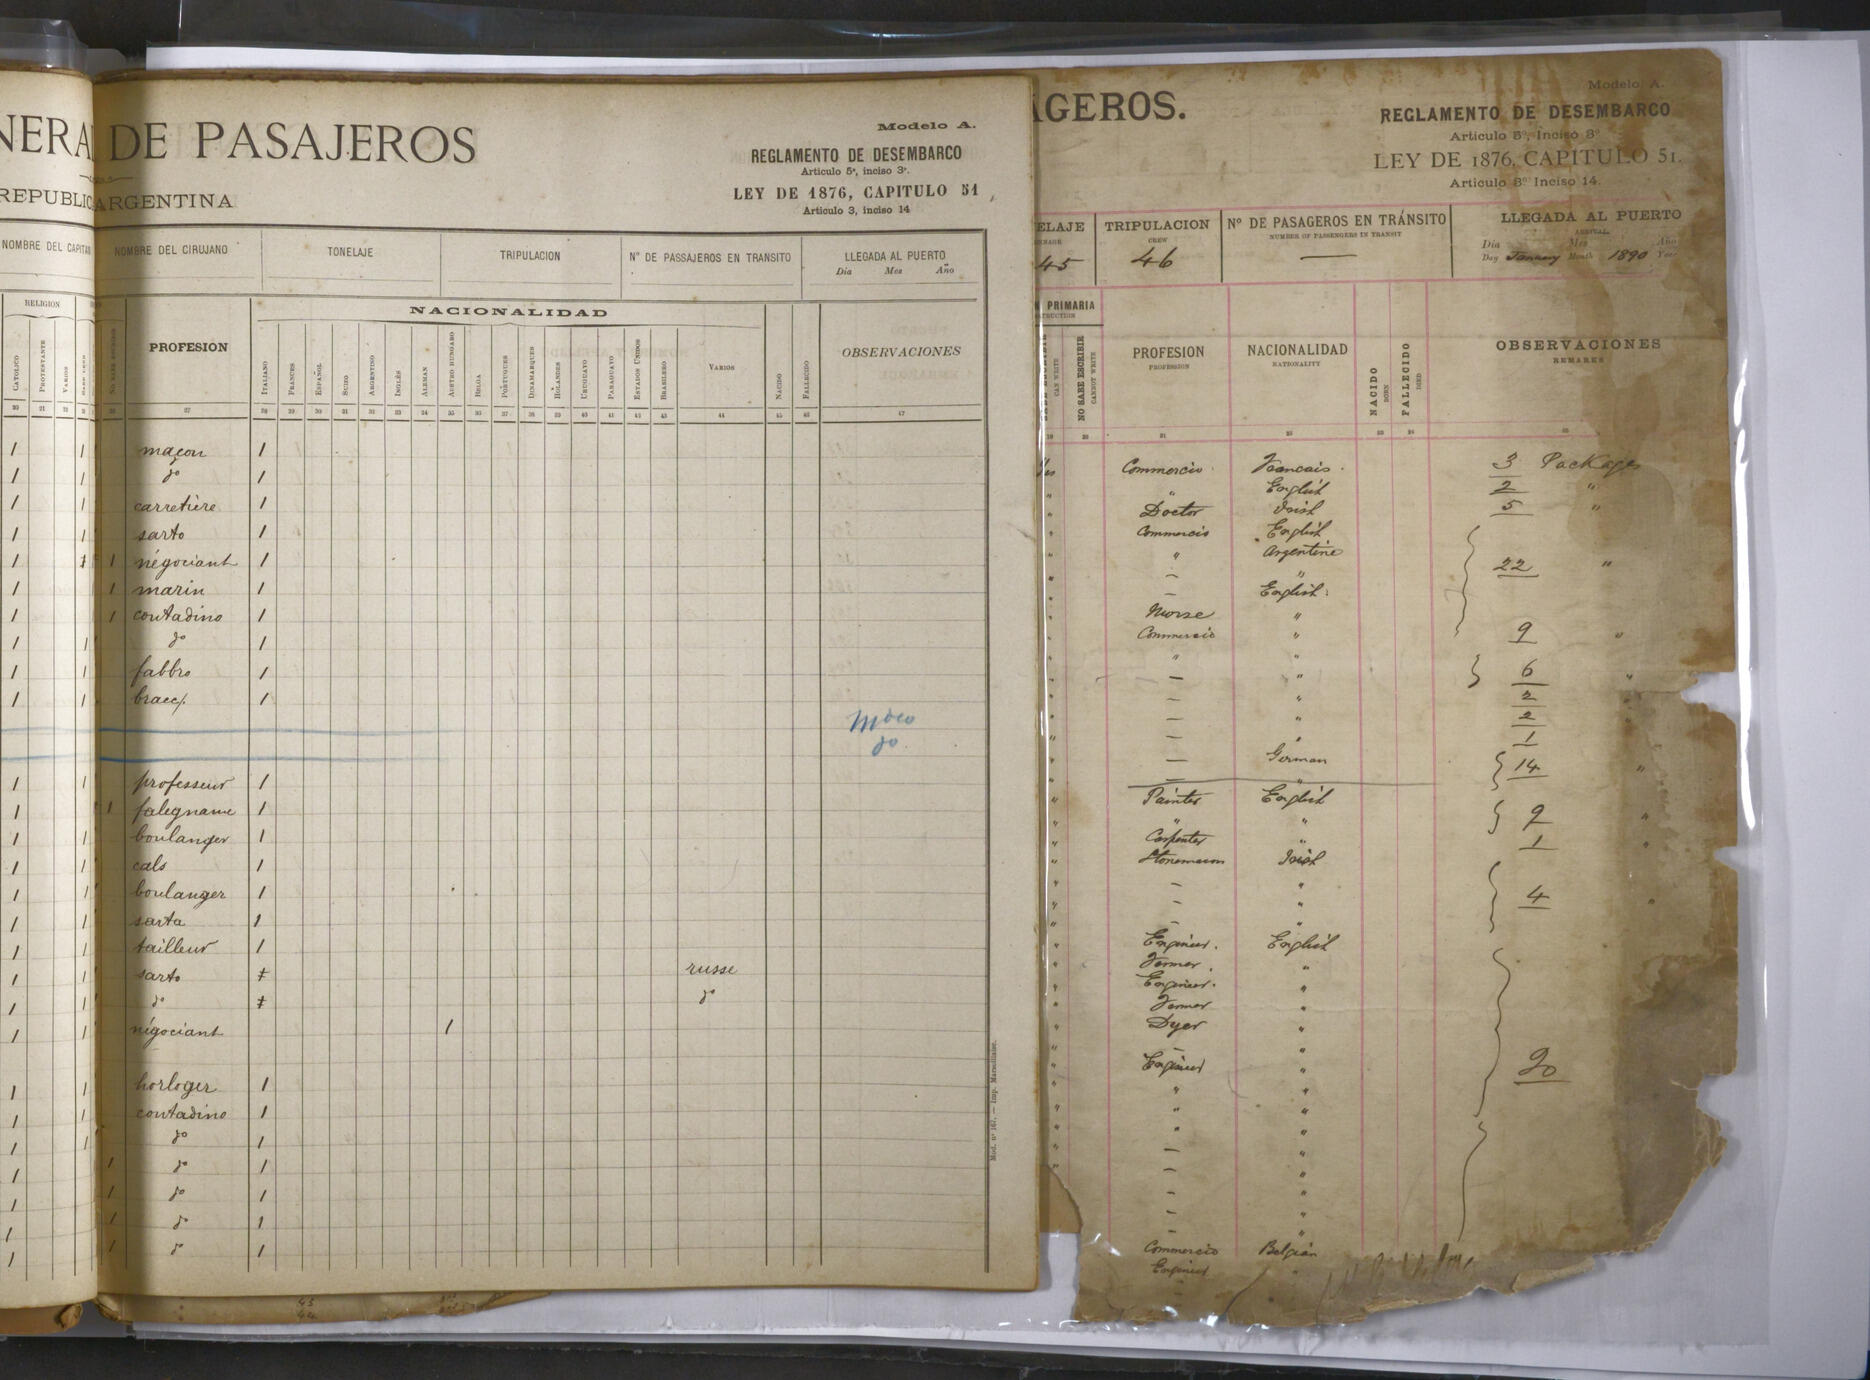 NERA DE PASAJEROS
REPUBLIC ARGENTINA
Modelo A.
REGLAMENTO DE DESEMBARCO
Articulo 5º, inciso 3º.
LEY DE 1876, CAPITULO 51
Articulo 3, inciso 14
NOMBRE DEL CAPITA
NOMBRE DEL CIRUJANO
TONELAJE
TRIPULACION
Nº DE PASSAJEROS EN TRANSITO
LLEGADA AL PUERTO
Dia Mes Año
RELIGION
NACIONALIDAD
CATOLICO
PROTESTANTE
VARIOS
PROFESION
ITALIANO
FRANCES
ESPAÑOL
SUIZO
ARGENTINO
INGLÉS
ALEMAN
AUSTRO HUNGARO
BELGA
PORTUGUES
DINAMARQUES
HOLANDES
URUGUAYO
PARAGUAYO
ESTADOS UNIDOS
BRASILERO
VARIOS
NACIDO
FALLECIDO
OBSERVACIONES
20 21 22 27 28 29 30 31 32 33 34 35 36 37 38 39 40 41 42 43 44 45 46 47
1 1 maçon 1
1 1 do 1
1 1 carretière 1
1 1 sarto 1
1 1 négociant 1
1 1 marin 1
1 1 contadino 1
1 1 do 1
1 1 fabbro 1
1 1 bracc/. 1
do
1 1 professeur 1
1 1 falegname 1
1 1 boulanger 1
1 1 cals 1
1 1 boulanger 1
1 1 sarta 1
1 1 tailleur 1
1 1 sarto 1 russe
1 1 do 1 do
1 1 négociant 1
1 1 horloger 1
1 1 contadino 1
1 1 do 1
1 1 do 1
1 1 do 1
1 1 do 1
1 1 do 1
Mod. nº 167. — Imp. Marseillaise.
43
44
AGEROS.
Modelo A.
REGLAMENTO DE DESEMBARCO
Articulo 5º, Inciso 3º
LEY DE 1876, CAPITULO 51.
Articulo 3º Inciso 14.
ELAJE
NNAGE
45
TRIPULACION
CREW
46
Nº DE PASAGEROS EN TRÁNSITO
NUMBER OF PASSENGERS IN TRANSIT
—
LLEGADA AL PUERTO
ARRIVAL
Dia Mes Año
Day January Month 1890 Year
N PRIMARIA
STRUCTION
SABE ESCRIBIR
CAN WRITE
NO SABE ESCRIBIR
CANNOT WRITE
PROFESION
PROFESSION
NACIONALIDAD
NATIONALITY
NACIDO
BORN
FALLECIDO
DIED
OBSERVACIONES
REMARKS
19 20 21 22 23 24 25
Yes Commercio Francais 3 Packages
" " English 2 "
" Doctor Irish 5 "
" Commercio English
" " Argentine
" — " 22 "
" — English
" Nurse "
" Commercio " 9 "
" " "
" — " 6 "
" — " 2 "
" — " 2 "
" — " 1
" — German 14 "
" — "
" Painter English
" " " 9 "
" Carpenter " 1 "
" Stonemason Irish
" — "
" — " 4 "
" — "
" Engineer English
" Farmer "
" Engineer "
" Farmer "
" Dyer "
" — "
" Engineer " 20
" " "
" " "
" " "
" — "
" — "
— "
— "
—
Commercio Belgian
Engineer "